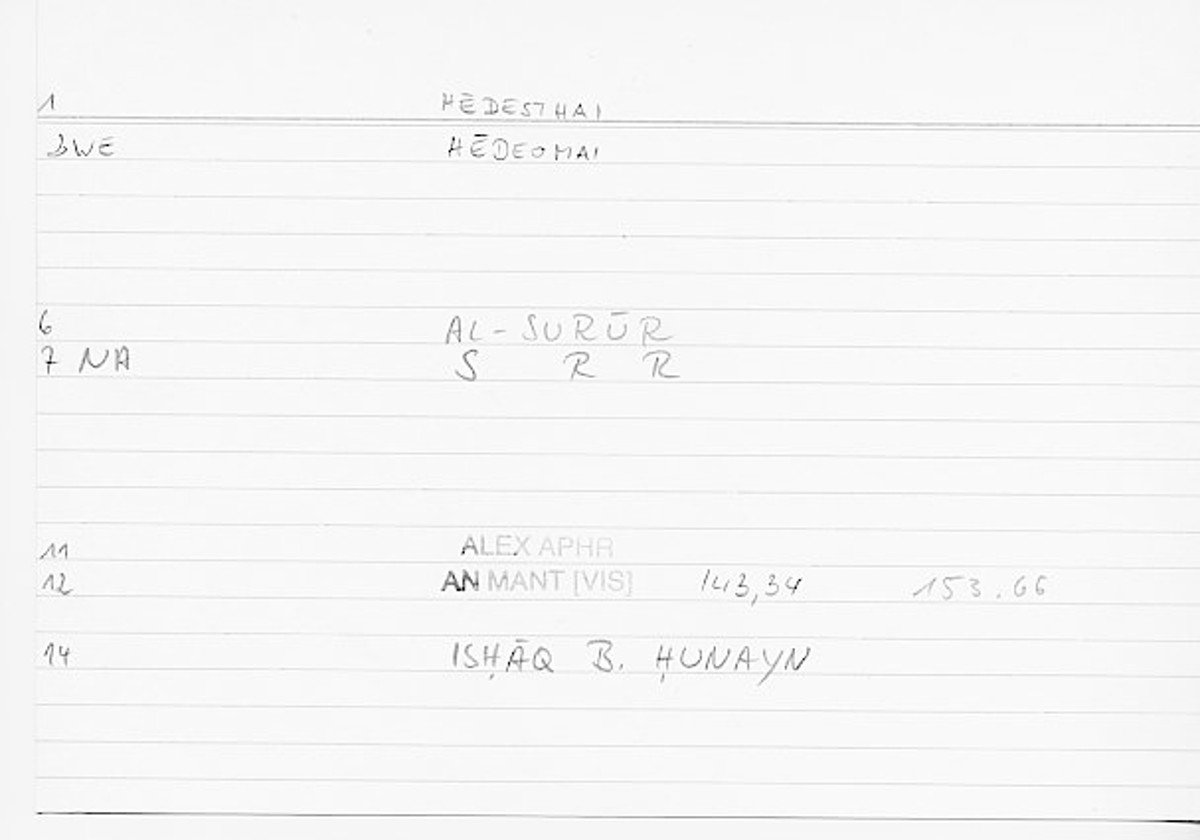 1 HĒDESTHAI
3WE HĒDEOMAI
6 AL-SURŪR
7 NA S R R
11 ALEX APHR
12 AN MANT [VIS] 143,34 153.66
14 ISḤĀQ B. ḤUNAYN